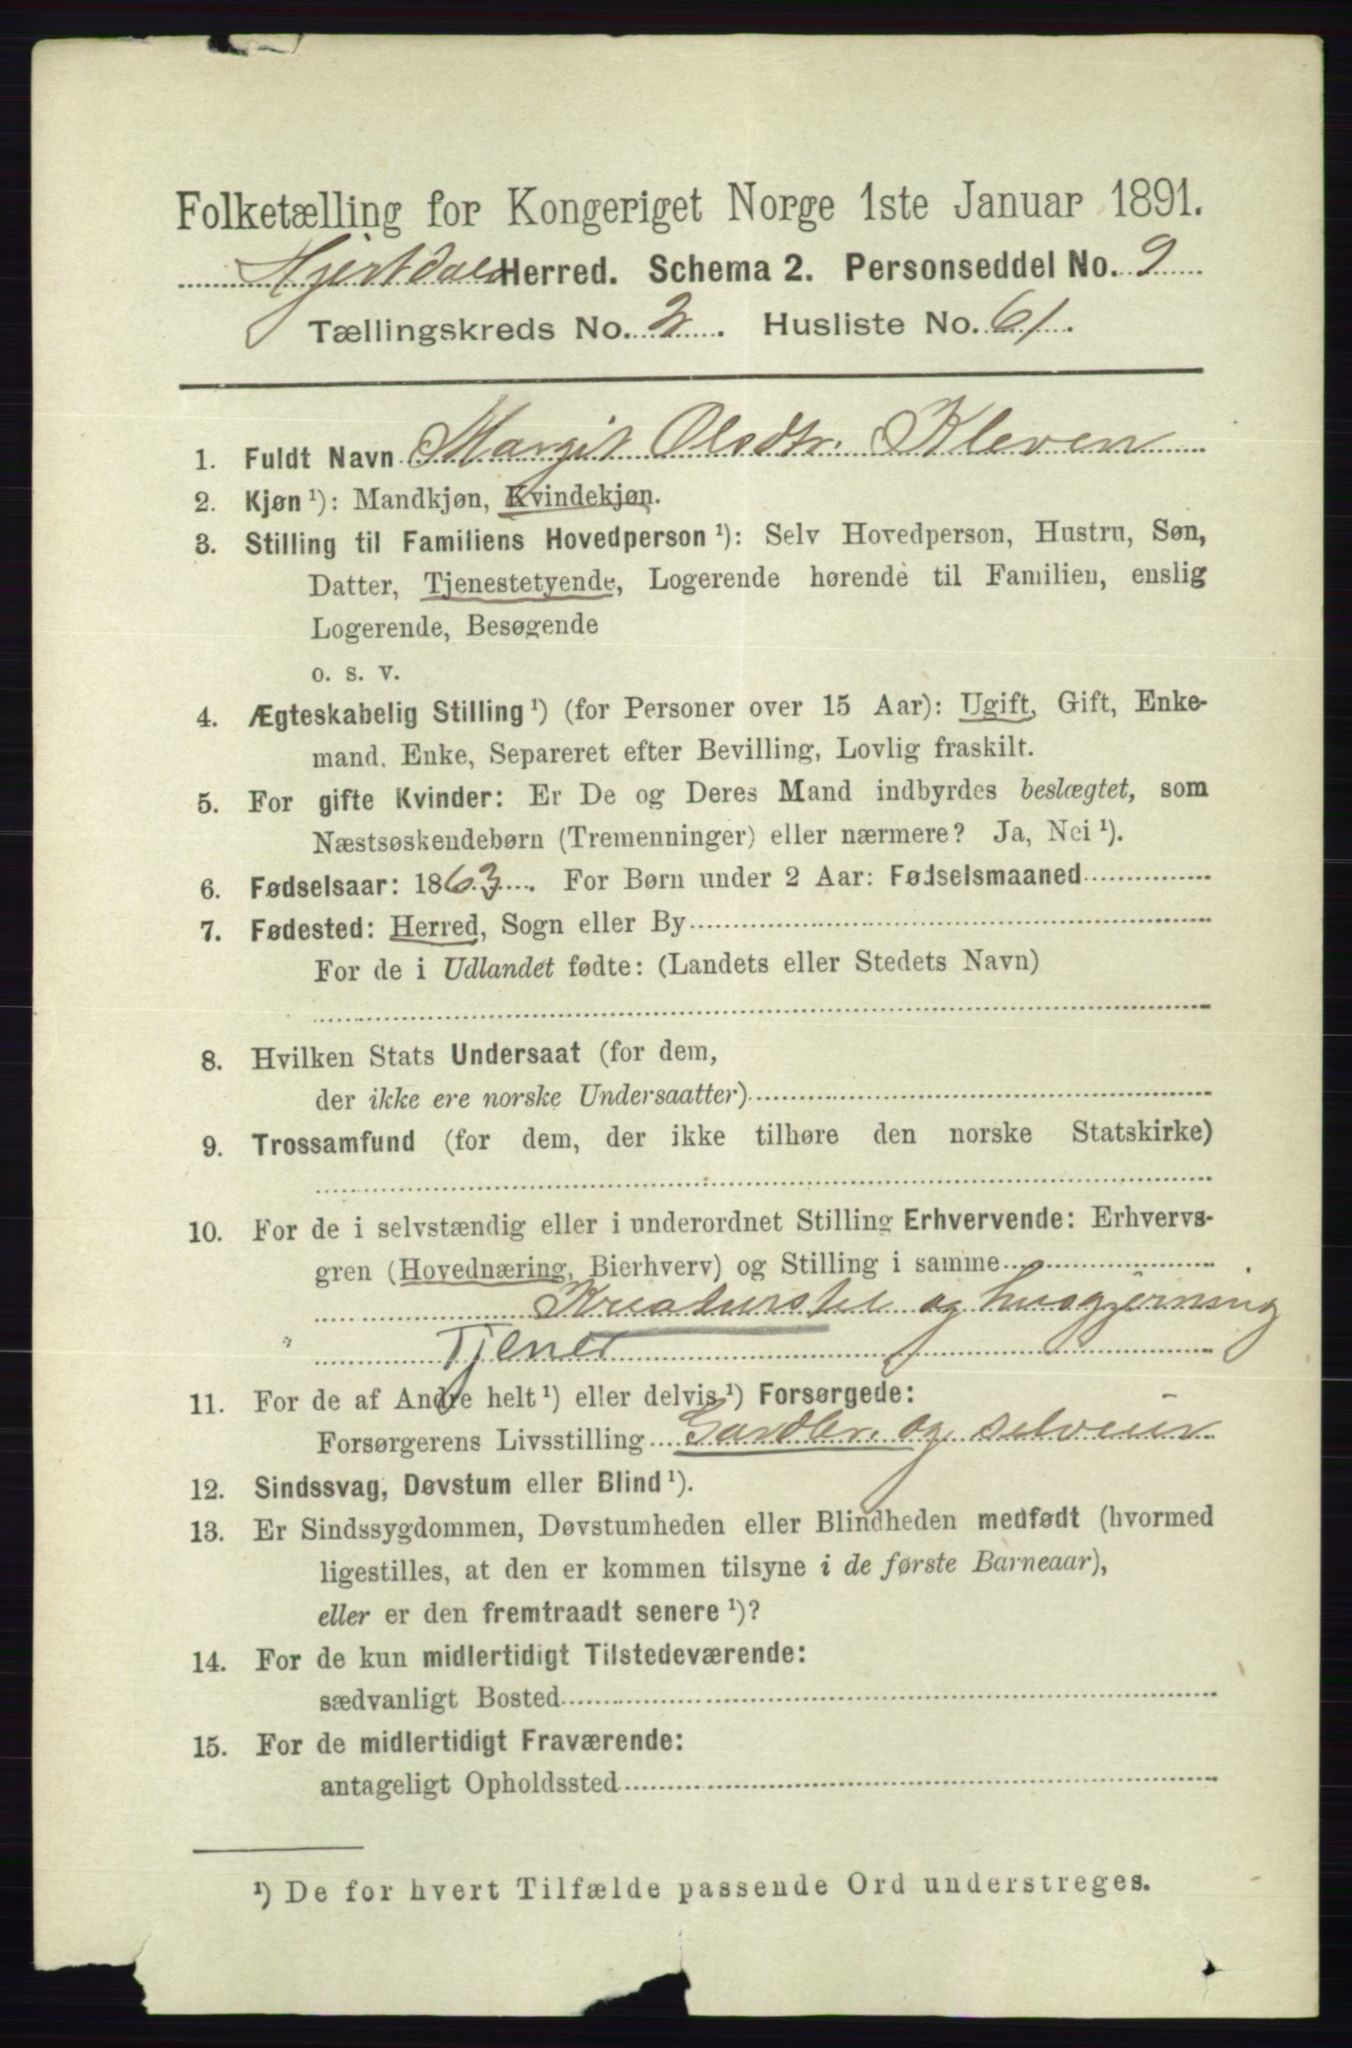 Folketælling for Kongeriget Norge 1ste Januar 1891.
Hjertdals Herred. Schema 2. Personseddel No. 9
Tællingskreds No. 2. Husliste No. 61.
1. Fuldt Navn Margit Olsdtr. Kleven
2. Kjøn ¹): Mandkjøn, Kvindekjøn.
3. Stilling til Familiens Hovedperson ¹): Selv Hovedperson, Hustru, Søn,
Datter, Tjenestetyende, Logerende hørende til Familien, enslig
Logerende, Besøgende
o. s. v.
4. Ægteskabelig Stilling ¹) (for Personer over 15 Aar): Ugift, Gift, Enke-
mand. Enke, Separeret efter Bevilling, Lovlig fraskilt.
5. For gifte Kvinder: Er De og Deres Mand indbyrdes beslægtet, som
Næstsøskendebørn (Tremenninger) eller nærmere? Ja, Nei ¹).
6. Fødselsaar: 1863. For Børn under 2 Aar: Fødselsmaaned
7. Fødested: Herred, Sogn eller By
For de i Udlandet fødte: (Landets eller Stedets Navn)
8. Hvilken Stats Undersaat (for dem,
der ikke ere norske Undersaatter)
9. Trossamfund (for dem, der ikke tilhøre den norske Statskirke)
10. For de i selvstændig eller i underordnet Stilling Erhvervende: Erhvervs-
gren (Hovednæring, Bierhverv) og Stilling i samme
Kreaturstel og husgjerning
Tjener
11. For de af Andre helt ¹) eller delvis ¹) Forsørgede:
Forsørgerens Livsstilling Gardbr. og selveier
12. Sindssvag, Døvstum eller Blind ¹).
13. Er Sindssygdommen, Døvstumheden eller Blindheden medfødt (hvormed
ligestilles, at den er kommen tilsyne i de første Barneaar),
eller er den fremtraadt senere ¹)?
14. For de kun midlertidigt Tilstedeværende:
sædvanligt Bosted
15. For de midlertidigt Fraværende:
antageligt Opholdssted
¹) De for hvert Tilfælde passende Ord understreges.